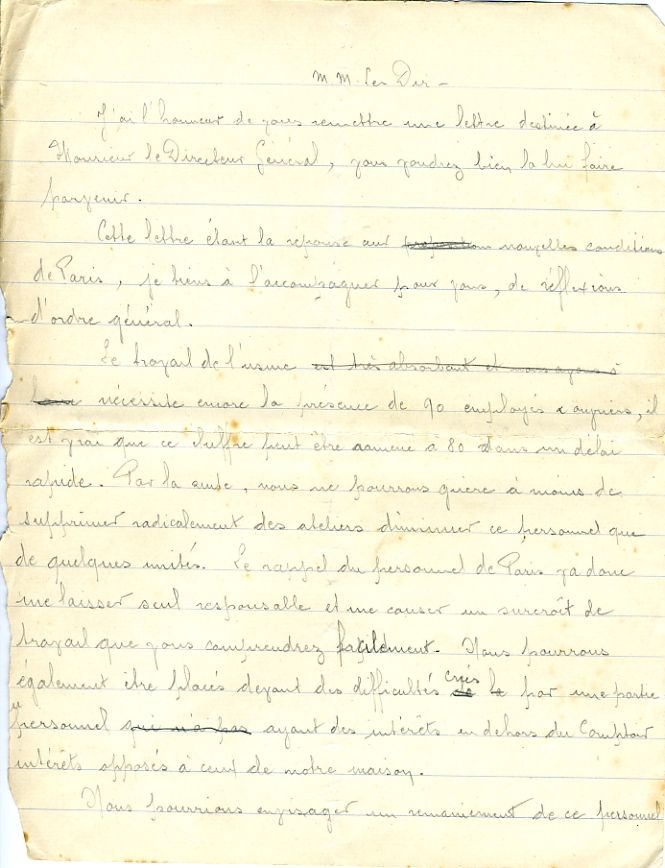 M.M. Les Dir -
J'ai l'honneur de vous remettre une lettre destinée à
Monsieur le Directeur Général, vous voudrez bien la lui faire
parvenir.
Cette lettre étant la réponse aux propositions nouvelles conditions
de Paris, je tiens à l'accompagner pour vous, de réflexions
d'ordre général.
Le travail de l'usine est très absorbant et nous avons
nécessite encore la présence de 90 employés & ouvriers, il
est vrai que ce chiffre peut être ramené à 80 dans un délai
rapide. Par la suite, nous ne pourrons guère à moins de
supprimer radicalement des ateliers diminuer ce personnel que
de quelques unités. Le rappel du personnel de Paris va donc
me laisser seul responsable et me causer un surcroît de
travail que vous comprendrez facilement. Nous pourrons
également être placés devant des difficultés de la créés par une partie
personnel qui n'a pas ayant des intérêts en dehors du Comptoir
intérêts opposés à ceux de notre maison.
Nous pourrions envisager un remaniement de ce personnel